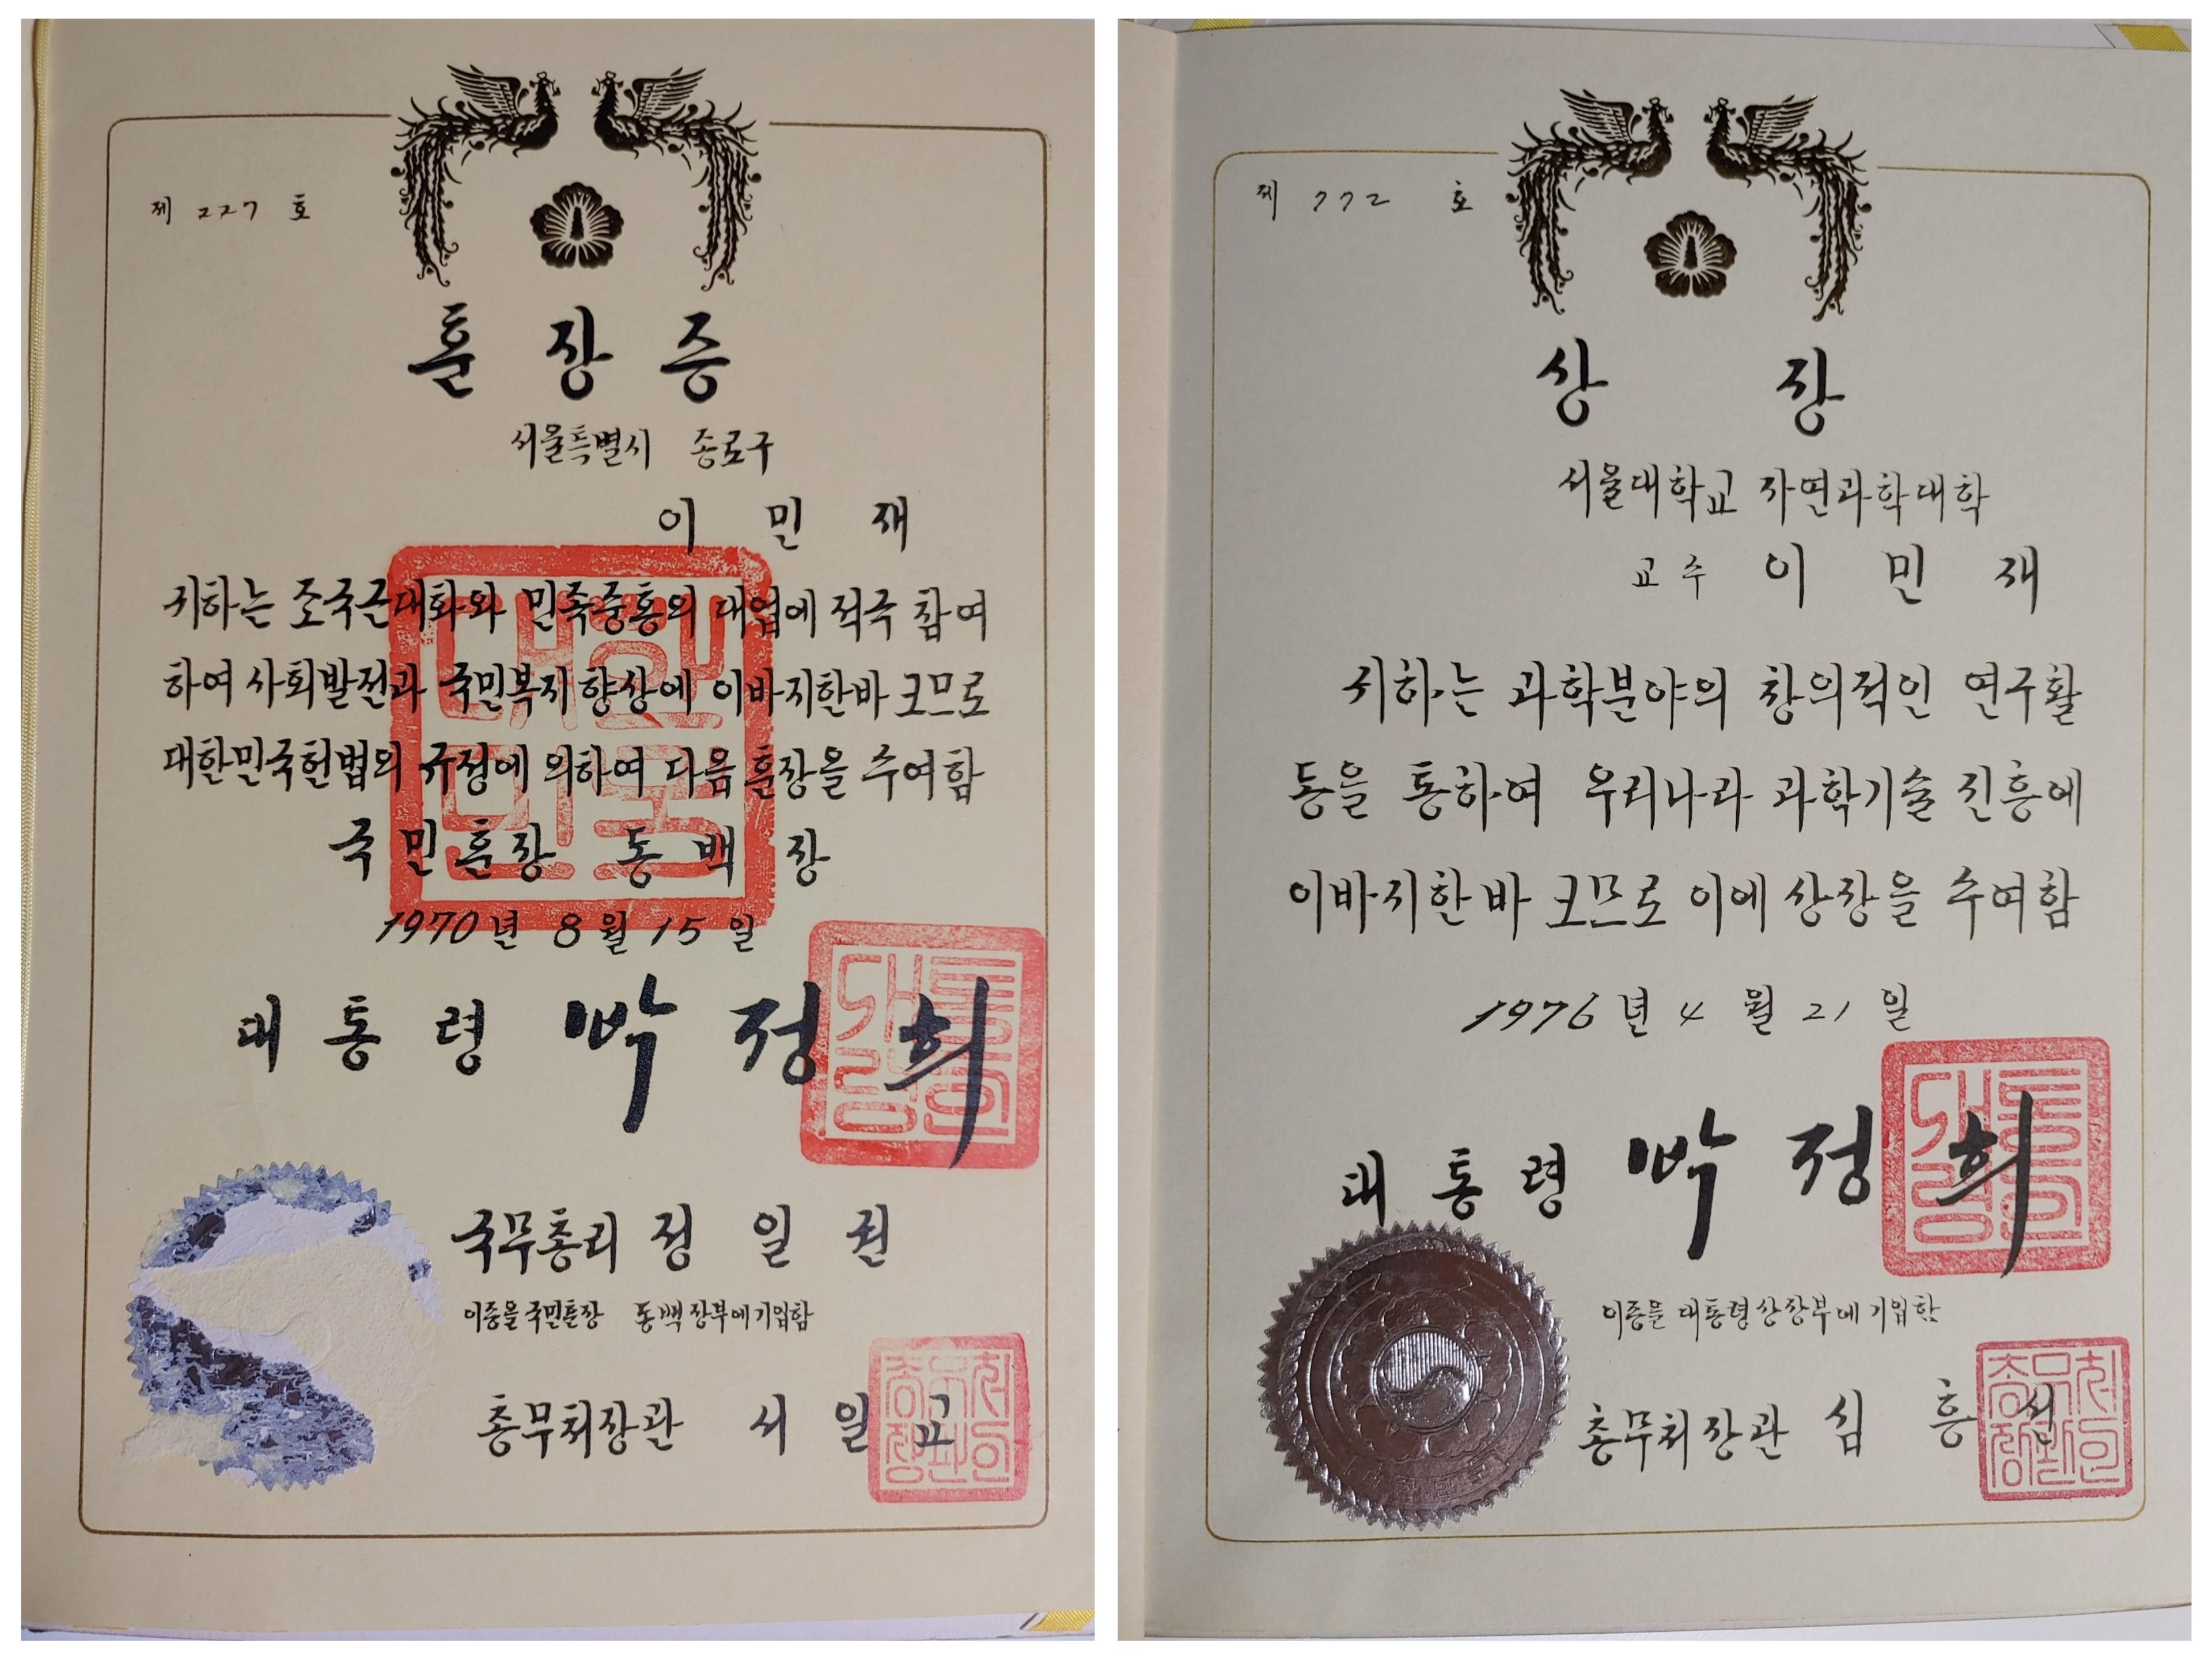 제 227 호
훈 장 증
서울특별시 종로구
이 민 재
귀하는 조국근대화와 민족중흥의 대업에 적극 참여
하여 사회발전과 국민복지 향상에 이바지한바 크므로
대한민국헌법의 규정에 의하여 다음 훈장을 수여함
국민훈장 동백장
1970년 8월 15일
대한민국
대통령 박정희
대통령인
국무총리 정일권
이증을 국민훈장 동백장부에 기입함
총무처장관 서일교
총무처장관인
제 772 호
상 장
서울대학교 자연과학대학
교수 이 민 재
귀하는 과학분야의 창의적인 연구활
동을 통하여 우리나라 과학기술 진흥에
이바지한 바 크므로 이에 상장을 수여함
1976년 4월 21일
대통령 박정희
대통령인
이증을 대통령상장부에 기입함
총무처장관 심흥선
총무처장관인